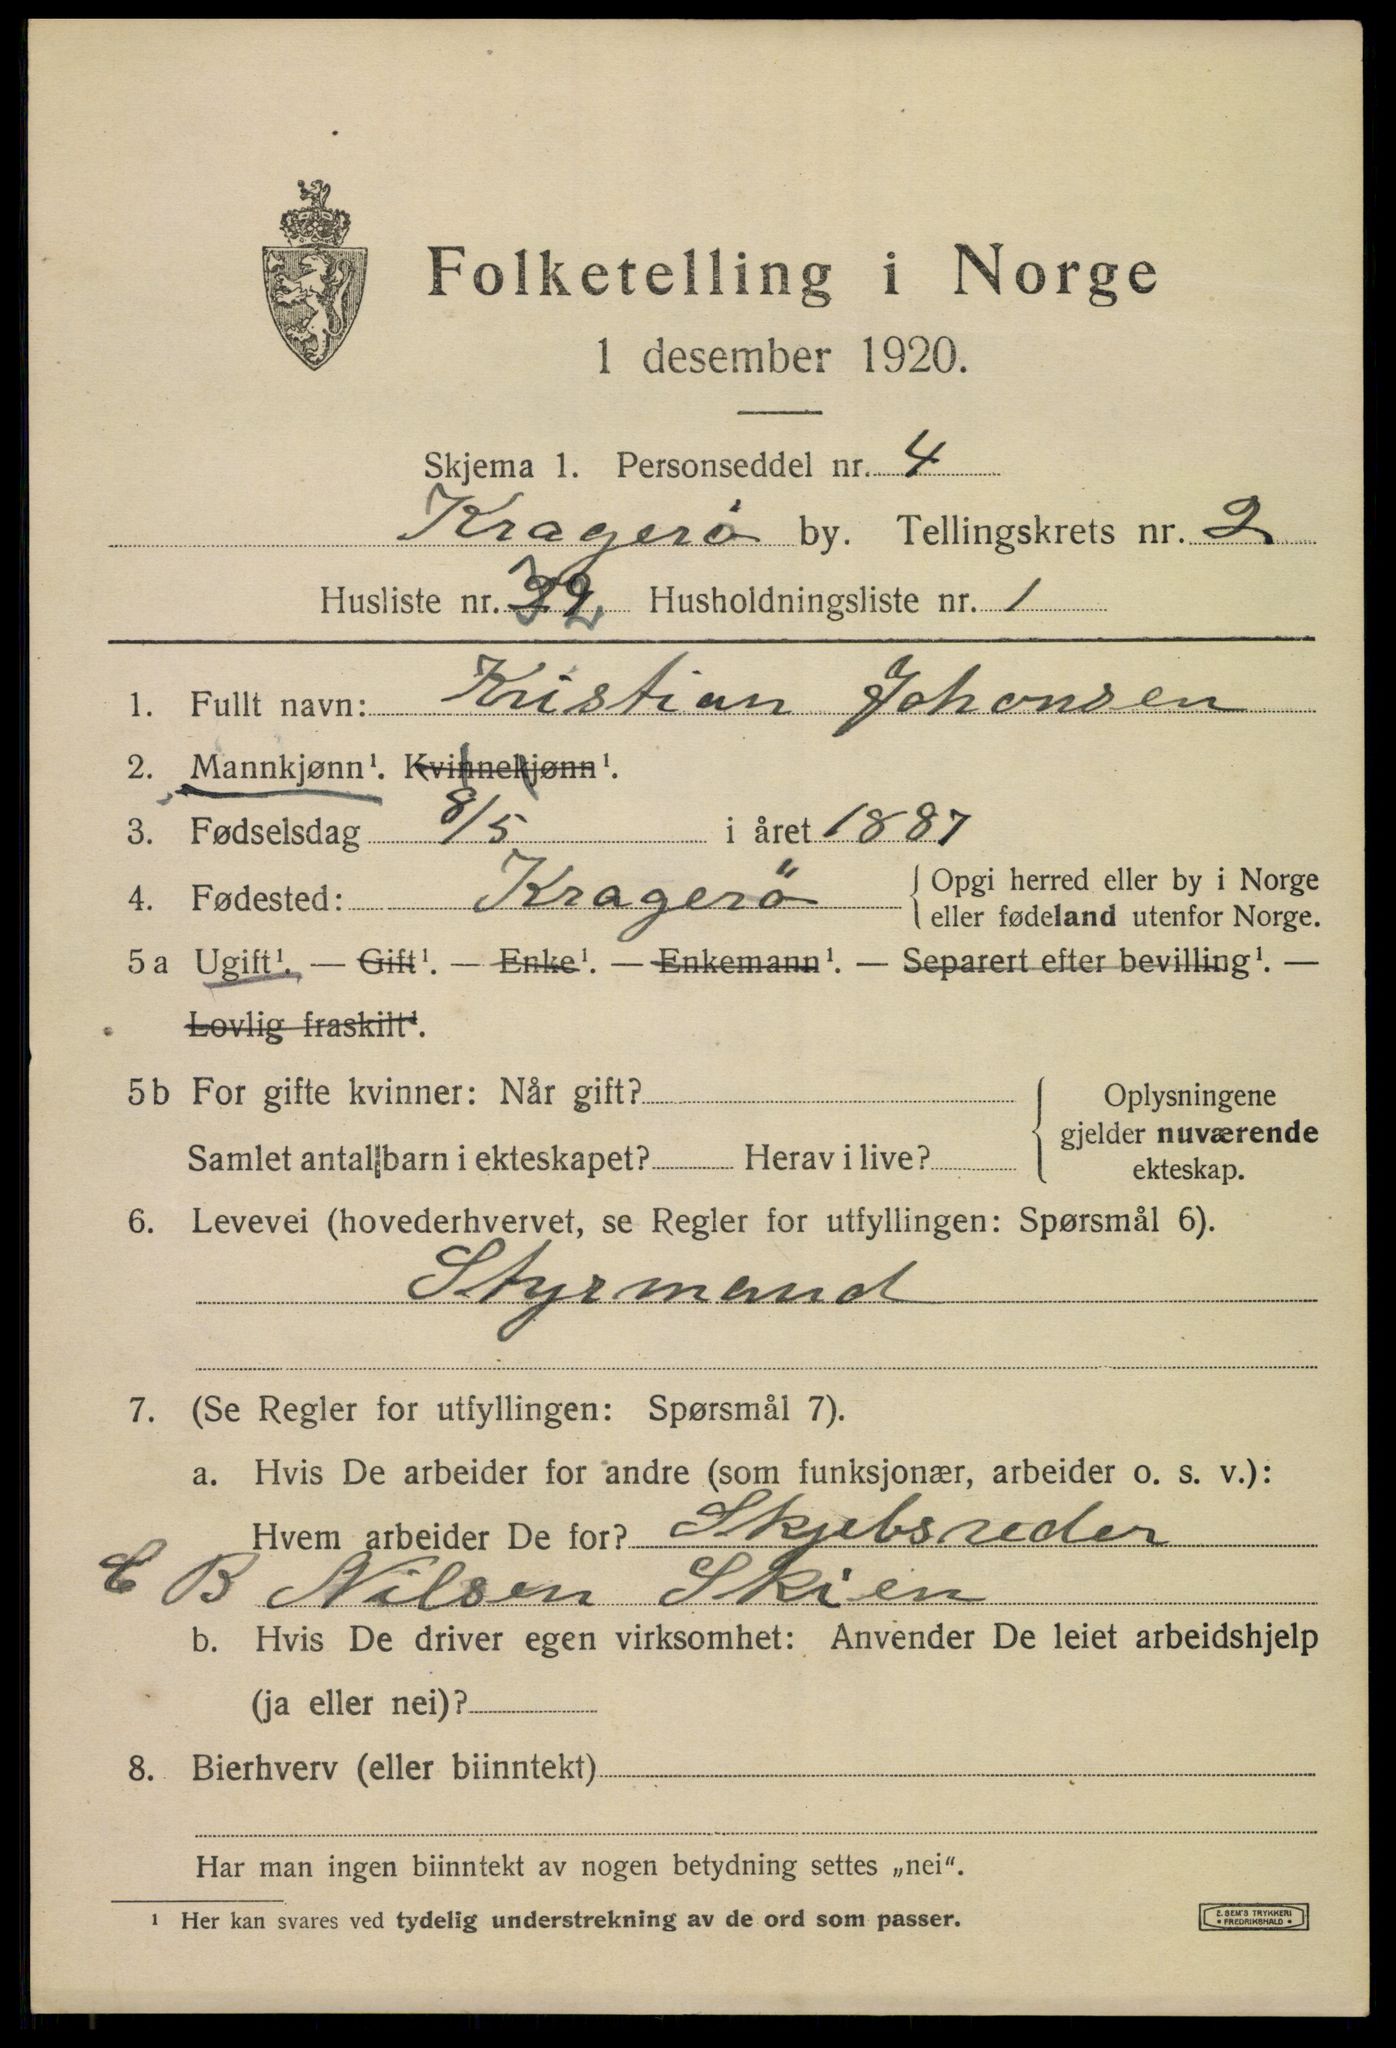 Folketelling i Norge
1 desember 1920.
Skjema 1. Personseddel nr. 4
Kragerö by. Tellingskrets nr. 2
Husliste nr. 32 Husholdningsliste nr. 1
1. Fullt navn: Kristian Johansen
2. Mannkjønn¹. Kvinnekjønn¹.
3. Fødselsdag 8/5 i året 1887
4. Fødested: Kragerö { Opgi herred eller by i Norge
eller fødeland utenfor Norge.
5 a Ugift¹. — Gift¹. — Enke¹. — Enkemann¹. — Separert efter bevilling¹. —
Lovlig fraskilt¹.
5 b For gifte kvinner: Når gift? { Oplysningene
gjelder nuværende
Samlet antal barn i ekteskapet? Herav i live?
ekteskap.
6. Levevei (hovederhvervet, se Regler for utfyllingen: Spørsmål 6).
Styrmand
7. (Se Regler for utfyllingen: Spørsmål 7).
a. Hvis De arbeider for andre (som funksjonær, arbeider o. s. v.):
Hvem arbeider De for? Skjebsreder
B Nilsen Skien
b. Hvis De driver egen virksomhet: Anvender De leiet arbeidshjelp
(ja eller nei)?
8. Bierhverv (eller biinntekt)
Har man ingen biinntekt av nogen betydning settes „nei“.
¹ Her kan svares ved tydelig understrekning av de ord som passer.
E. SEM'S TRYKKERI
• FREDRIKSHALD •